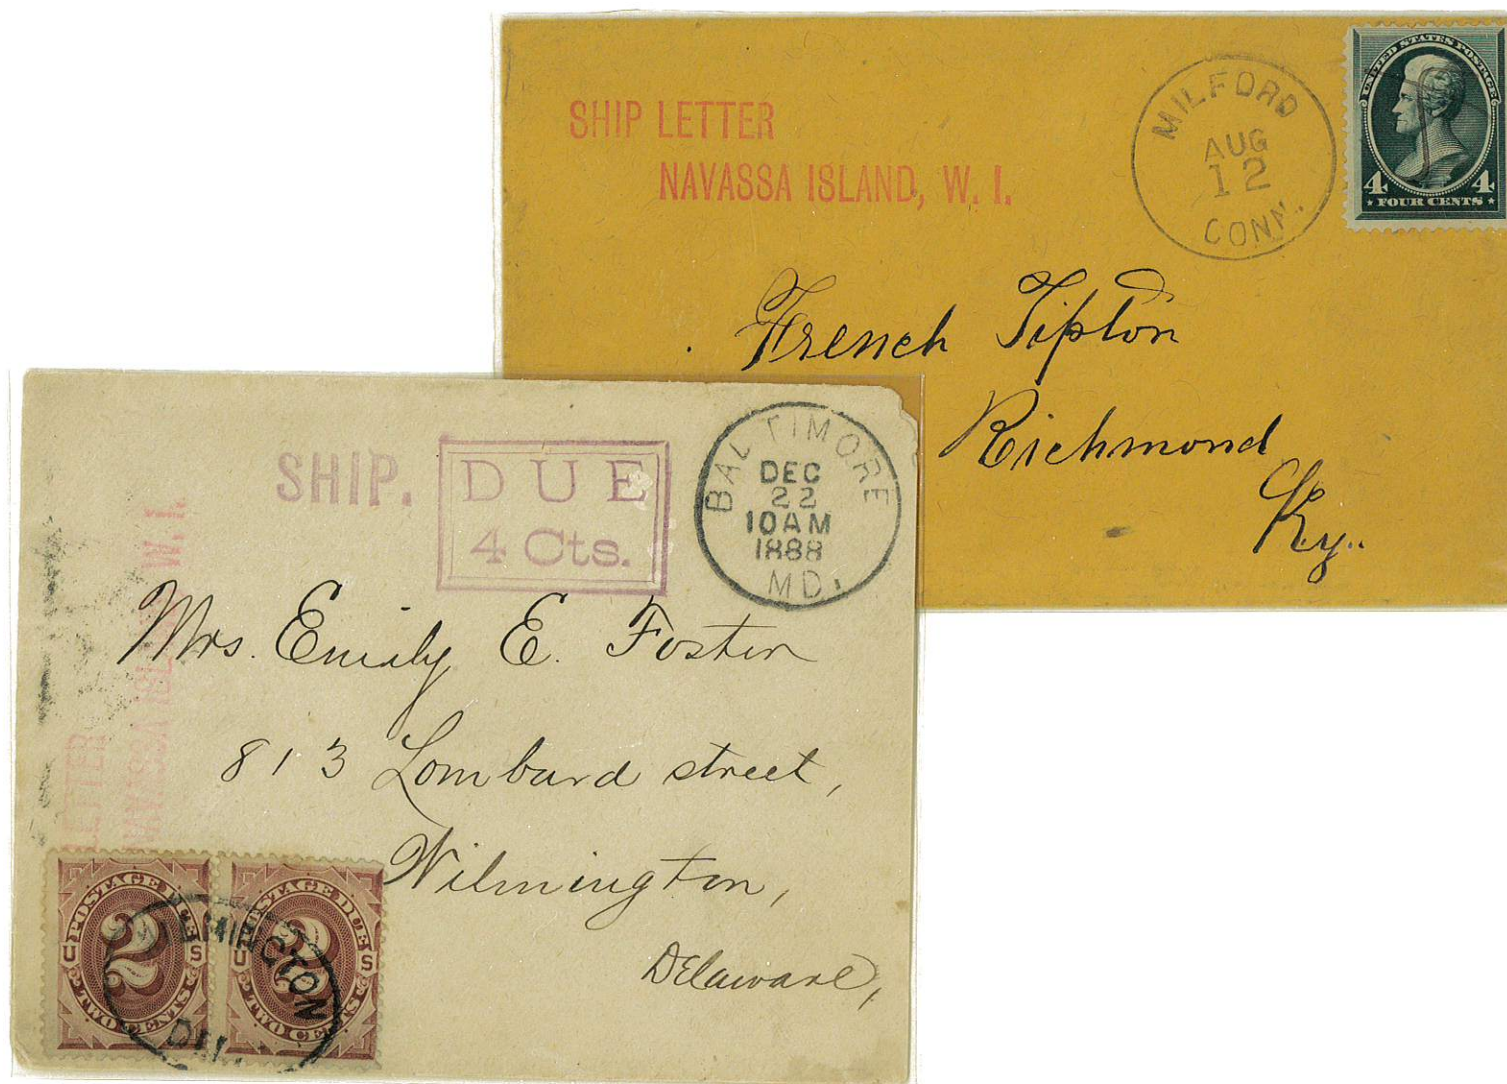 SHIP LETTER
NAVASSA ISLAND, W. I.
MILFORD
AUG
12
CONN.
UNITED STATES POSTAGE
4 4
FOUR CENTS
French Tipton
Richmond
Ky.
SHIP.
DUE
4 Cts.
BALTIMORE
DEC
22
10AM
1888
MD.
LETTER
NAVASSA ISLAND W. I.
Mrs. Emily E. Foster
813 Lombard street,
Wilmington,
Delaware,
POSTAGE DUE
U 2 S
TWO CENTS
POSTAGE DUE
U 2 S
TWO CENTS
WILMINGTON
DEL.